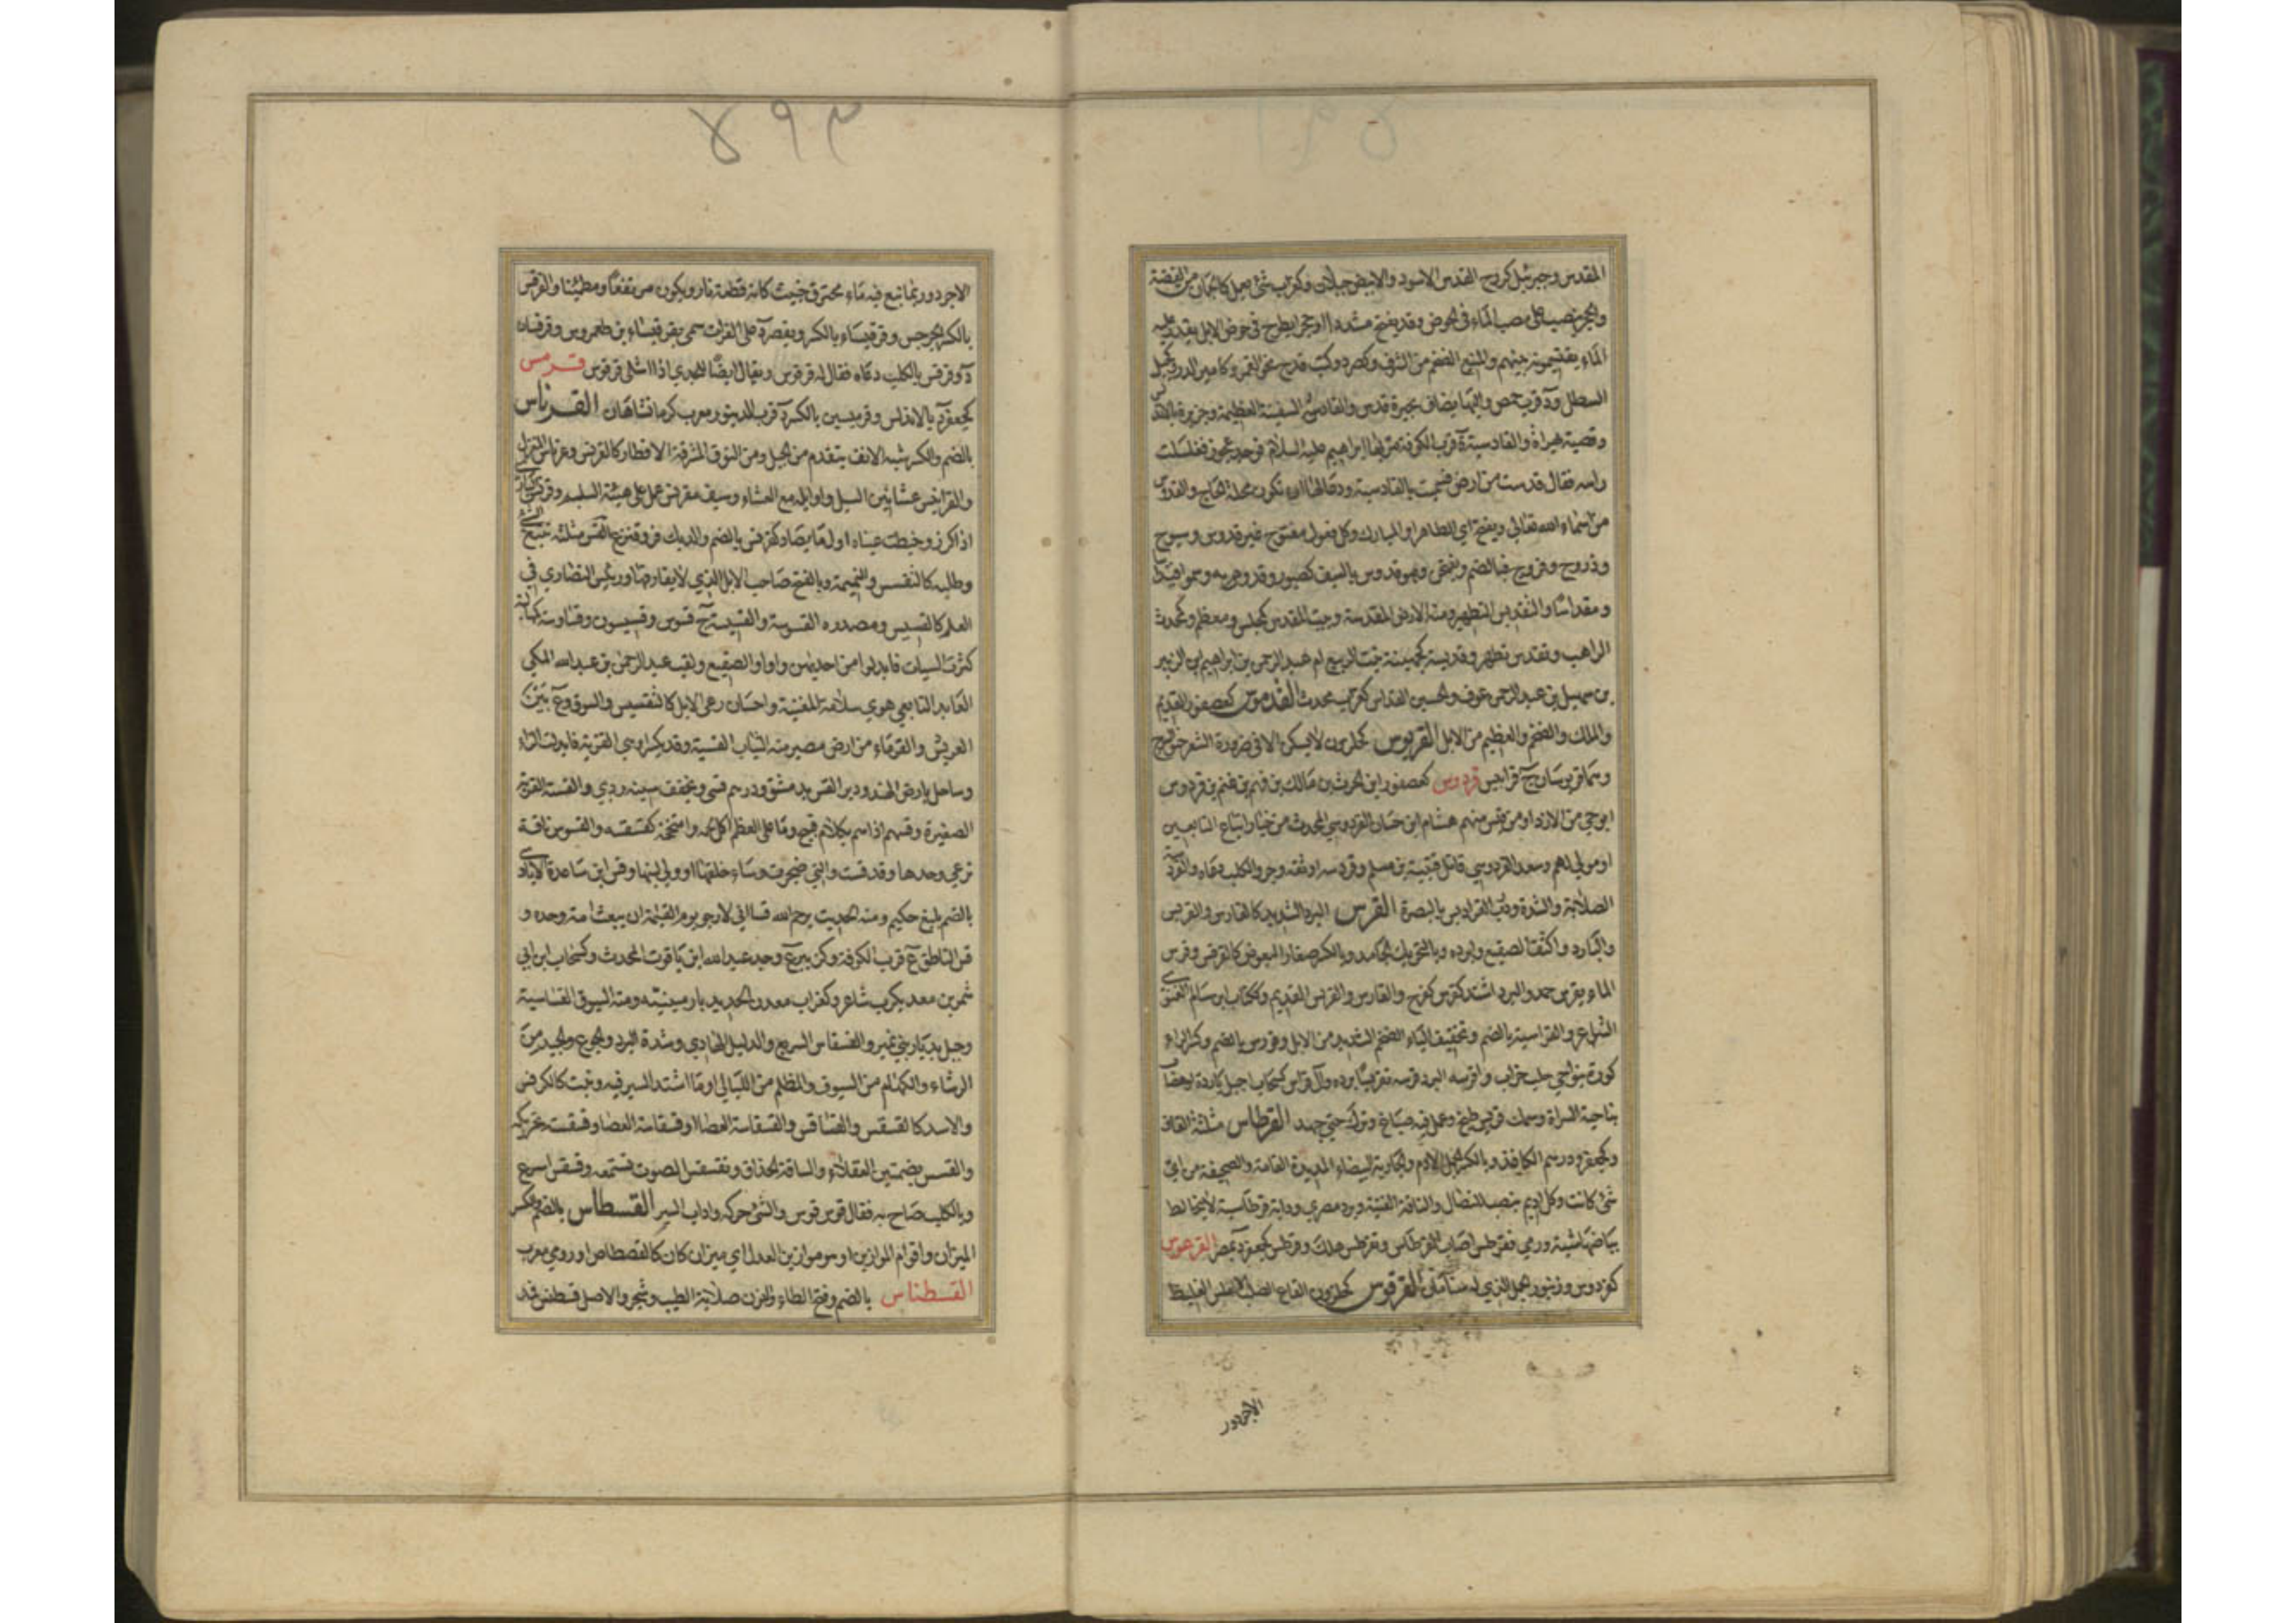 المقدس وجبرئيل كروح القدس الاسود والابيض جبلان وكغراب شئ يعمل كالجمان من الفضة
والحجر ينصب على مصب الماء في الحوض وقد يفتح مشددا او حجر يطرح في حوض الابل يقدر عليه
الماء يقتسمونه بينهم والمنيع الضخم من الشرف وكصرد وكتب قدح نحو الغمر وكامير الدر وكجبل
السطل ود قرب حمص واليها يضاف بحيرة قدس والقادس السفينة العظيمة وجزيرة بالاندلس
وقصبة هراة والقادسية ة قرب الكوفة مر بها ابراهيم عليه السلام فوجد عجوز فغسلت
راسه فقال قدست من ارض فسميت بالقادسية ودعا لها ان تكون محلة الحاج والقدوس
من اسماء الله تعالى ويفتح اي الطاهر او المبارك وكل فعول مفتوح غير قدوس وسبوح
وذروح وفروج فبالضم ويفتحن وهو قدوس بالسيف كصبور وقدوم به وسموا قيدار
ومقداسا والتقديس التطهير ومنه الارض المقدسة وبيت المقدس كمجلس ومعظم وكمحدث
الراهب وتقدس تطهر وقديسة كجهينة بنت الربيع ام عبد الرحمن بن ابراهيم ابن الزبير
بن سهيل بن عبد الرحمن عوف والحسين القداس كغراب محدث القدموس كعصفور القديم
والملك والضخم والعظيم من الابل القربوس كحلزون لا يسكن الا في ضرورة الشعر حنو السرج
وهما قربوسان ج قرابيس قردوس كعصفور ابن الحرث بن مالك بن فهم بن غنم بن قردوس
ابو حي من الازد او من قيس منهم هشام ابن حسان القردوسي المحدث من خيار اتباع التابعين
او مولى لهم وسعد القردوسي قاتل قتيبة بن مسلم وقردسه اوثقه وجرو الكلب دعاه والقردسة
الصلابة والشدة ودرب القراديس بالبصرة القرس البرد الشديد كالقارس والقريس
والبارد واكثف الصقيع وابرده وبالتحريك الجامد وبالكسر صغار البعوض كالقرقس وقرس
الماء يقرس جمد والبرد اشتد كقرس كفرح والقارس والقريس القديم وككتاب ابن سالم الغنوي
الشاعر والقراسية بالضم وتخفيف الياء الضخم الشديد من الابل وقورس بالضم وكسر الراء
كورة بنواحي حلب خراب واقرسه البرد قرسه تقريسا برده وآل قراس كسحاب اجبل باردة او هضاب
بناحية السراة وسمك قريس طبخ وعمل فيه صباغ وترك حتى جمد القرطاس مثلثة القاف
وكجعفر ودرهم الكاغذ وبالكسر الجمل الآدم والجارية البيضاء المديدة القامة والصحيفة من اي
شئ كانت وكل اديم ينصب للنضال والناقة الفتية وبرد مصري ودابة قرطاسية لا يخالط
بياضها شية ورمى فقرطس اصاب القرطاس وتقرطس هلك وقرطس كجعفر ة بمصر القرعوس
كفردوس وزنبور الجمل الذي له سنامان القرقوس كحلزون القاع الصلب الاملس الغليظ
الاجرد ور
٨٩٣
الاجرد وربما نبع فيه ماء محترق خبيث كانه قطعة نار ويكون مرتفعا ومطمئنا والقرقس
بالكسر الجرجس وقرقيساء بالكسر ويقصر د على الفرات سمي بقرقيساء بن طهمورس وقرقسان
د وقرقس بالكلب دعاه فقال له قرقوس ويقال ايضا للجدي اذا اشلي قرقوس قرمس
كجعفر د بالاندلس وقرميسين بالكسر د قرب الدينور معرب كرمانشاهان القرناس
بالضم والكسر شبه الانف يتقدم من الجبل ومن النوق المشرفة الاقطار كالقرنس وعرناس المغزل
والقرانيس عثانين السيل واوايله مع الغثاء وسيف مقرنس عمل على هيئة السلم وقرنس البازي
اذا كرز وخيطت عيناه اول ما يصاد كقرنس بالضم والديك فر وقنزع القس مثلثة تتبع الشئ
وطلبه كالتقسس والنميمة وبالفتح صاحب الابل الذي لا يفارقها ورئيس النصارى في
العلم كالقسيس ومصدره القسوسة والقسيسة ج قسوس وقسيسون وقساوسة كمهالبة
كثرت السينات فابدلوا من احديهن واوا والصقيع ولقب عبد الرحمن بن عبد الله المكي
العابد التابعي هوي سلامة المغنية واحسان رعي الابل كالتقسيس والسوق وع بين
العريش والفرماء من ارض مصر منه الثياب القسية وقد يكسر او هي القزية فابدلت الزاء
وساحل بارض الهند ودير القس بدمشق ودرهم قسي وتخفف سينه ردي والقسة القرية
الصغيرة وقسهم اذاهم بكلام قبيح وما على العظم اكل لحمه وامتخخه كقسقسه والقسوس ناقة
ترعى وحدها وقد قست والتي ضجرت وساء خلقها او ولى لبنها وقس ابن ساعدة الايادي
بالضم بليغ حكيم ومنه الحديث يرحم الله قسا اني لارجو يوم القيامة ان يبعث امة وحده و
قس الناطف ع قرب الكوفة وكزبير ع وجد عبد الله ابن ياقوت المحدث وكسحاب ابن ابي
شمر بن معد يكرب شاعر وكغراب معدن الحديد بارمينية ومنه السيوف القساسية
وجبل بديار بني نمير والقسقاس السريع والدليل الهادي وشدة البرد والجوع والجيد من
الرشاء والكهام من السيوف والمظلم من الليالي او ما اشتد السير فيه ونبت كالكرفس
والاسد كالقسقس والقساقس والقسقاسة العصا او قسقاسة العصا وقسقسته تحريكه
والقسس بضمتين العقلاء والساقة الحذاق وتقسقس الصوت تسمعه وقسقس اسرع
وبالكلب صاح به فقال قوس قوس والشئ حركه واداب السير القسطاس بالضم والكسر
الميزان واقوم الموازين او هو موازين العدل اي ميزان كان كالقصطاص او رومي معرب
القسطناس بالضم وفتح الطاء والنون صلاية الطيب وشجر والاصل قسطنس فمد